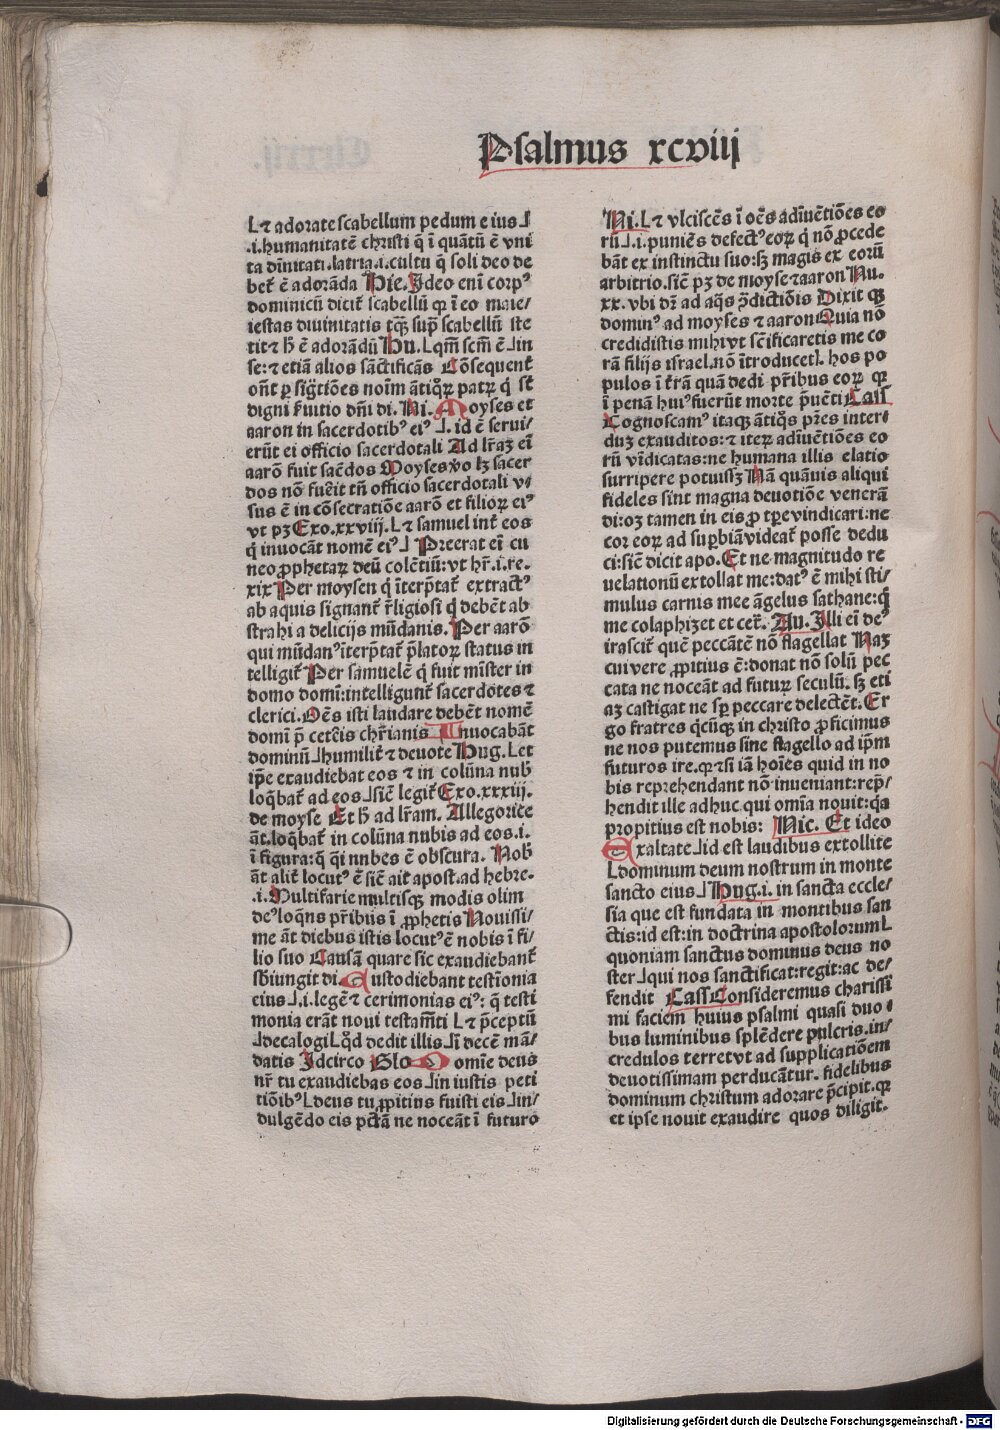 Psalmus xcviij
L⁊ adorate scabellum pedum eius⅃
.i.humanitatē christi q̄ ī quātū ē vni
ta diuītati.latria.i.cultu q̄ soli deo de
bet᷑ ē adorāda Pie.Ideo enī corpꝰ
dominicū dicit᷑ scabellū qꝛ ī eo maie/
iestas diuinitatis tāꝗ̄ sup̄ scabellū ste
tit⁊ h̄ ē adorādū Hu.Lqm̄ scm̄ ē⅃in
se:⁊ etiā alios sāctificās Cōsequent᷑
digni f̄uitio dn̄i di.Ni.Moyses et
aaron in sacerdotibꝰ eiꝰ⅃.id ē serui/
erūt ei officio sacerdotali Ad lr̄aꝫ eī
aarō fuit sac̄dos Moyses v̄o lꝫ sacer
dos nō fuerit tn̄ officio sacerdotali v/
sus ē in cōsecratiōe aarō et filioꝝ eiꝰ
vt pꝫ Exo.xxviij.L⁊ samuel int᷑ eos
q̇ inuocāt nomē eiꝰ⅃ Preerat eī cu
neo ꝓphetaꝝ deū colētiū:vt hr̄.i.re.
xix Per moysen q̇ īterp̄tat᷑ extractꝰ
ab aquis signant᷑ r̄ligiosi q̇ debēt ab
strahi a delicijs mūdanis.Per aarō
qui mūdanꝰ īterp̄tat᷑ p̄latoꝝ status in
telligit᷑ Per samuelē q̇ fuit mīster in
domo domī:intelligunt᷑ sacerdotes ⁊
clerici.Oēs isti laudare debēt nomē
domī p̄ ceteīs chr̄ianis Inuocabāt
dominū⅃humilit᷑ ⁊ deuote Hug.Let
ip̄e exaudiebat eos ⁊ in colūna nub̄
loq̄bat᷑ ad eos⅃sic̄ legit᷑ Exo.xxxiij.
de moyse Et h̄ ad lr̄am.Allegorice
āt.loq̄bat᷑ in colūna nubis ad eos.i.
ī figura:q̄ q̄i nnbes ē obscura.Nob̄
āt alit᷑ locutꝰ ē sic̄ ait apost.ad hebre.
.i.Multifarie multisqꝫ modis olim
deꝰ loq̄ns pr̄ibus ī ꝓphetis Nouissi/
me āt diebus istis locutꝰ ē nobis ī fi/
lio suo Causā quare sic exaudiebant᷑
sb̄iungit di.Custodiebant testīonia
eius⅃.i.legē⁊ cerimonias eiꝰ:q̄ testi
monia erāt noui testam̄ti L⁊ p̄ceptū
⅃decalogi Lqd̄ dedit illis⅃ī decē mā/
datis Idcirco Glo Domīe deus
nr̄ tu exaudiebas eos⅃in iustis peti
tiōibꝰLdeus tu ꝓpitius fuisti eis⅃in/
dulgēdo eis pctā ne noceāt ī futuro
Ni.L⁊ vlciscēs ī oēs adīuētiōes eo
rū⅃.i.puniēs defectꝰ eoꝝ q̇ nō ꝓcede
bāt ex instinctu suo:sꝫ magis ex eorū
arbitrio.sic̄ pꝫ de moyse ⁊aaron Nu.
xx.vbi dr̄ ad aq̄s ꝯ̄dictiōis Dixit qꝫ
dominꝰ ad moyses ⁊ aaron Quia nō
credidistis mihi vt sc̄ificaretis me co
rā filijs israel.nō ītroducetl.hos po
pulos ī tr̄ā quā dedi pr̄ibus eoꝝ qꝛ
ī penā huiꝰ fuerūt morte p̄uēti Cass
Cognoscamꝰ itaqꝫ ātiq̇s pr̄es inter/
duꝫ exauditos:⁊ iteꝝ adīuētiōes eo
rū vīdicatas:ne humana illis elatio
surripere potuissꝫ Nā quāuis aliqui
fideles sint magna deuotiōe venerā
di:oꝫ tamen in eis ꝓ tp̄e vindicari:ne
cor eoꝝ ad sup̄biā videat᷑ posse dedu
ci:sic̄ dicit apo.Et ne magnitudo re
uelationū extollat me:datꝰ ē mihi sti/
mulus carnis mee āgelus sathane:q̇
me colaphizet et cet᷑.Au.Illi eī deꝰ
irascit᷑ quē peccātē nō flagellat Naꝫ
cui vere ꝓpitius ē:donat nō solū pec
cata ne noceāt ad futuꝝ seculū.sꝫ eti
aꝫ castigat ne sp̄ peccare delectēt.Er
go fratres q̇cūqꝫ in christo ꝓficimus
ne nos putemus sine flagello ad ip̄m
futuros ire.qꝛ⁊si iā hoīes quid in no
bis reprehendant nō inueniant:rep̄/
hendit ille adhuc qui omīa nouit:q̇a
propitius est nobis: Nic. Et ideo
Exaltate⅃id est laudibus extollite
Ldominum deum nostrum in monte
sancto eius⅃Hug.i.in sancta eccle/
sia que est fundata in montibus san
ctis:id est:in doctrina apostolorumL
quoniam sanctus dominus deus no
ster⅃qui nos sanctificat:regit:ac de/
fendit Cass Consideremus charissi
mi faciem huius psalmi quasi duo
bus luminibus splēdere pulcris.in/
credulos terretvt ad supplicatiōem
deuotissimam perducātur.fidelibus
dominum christum adorare p̄cipit.qꝛ
et ipse nouit exaudire quos diligit.
Digitalisierung gefördert durch die Deutsche Forschungsgemeinschaft - DFG